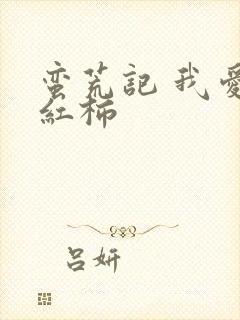 蛮荒記 我愛
紅柿
吕妍